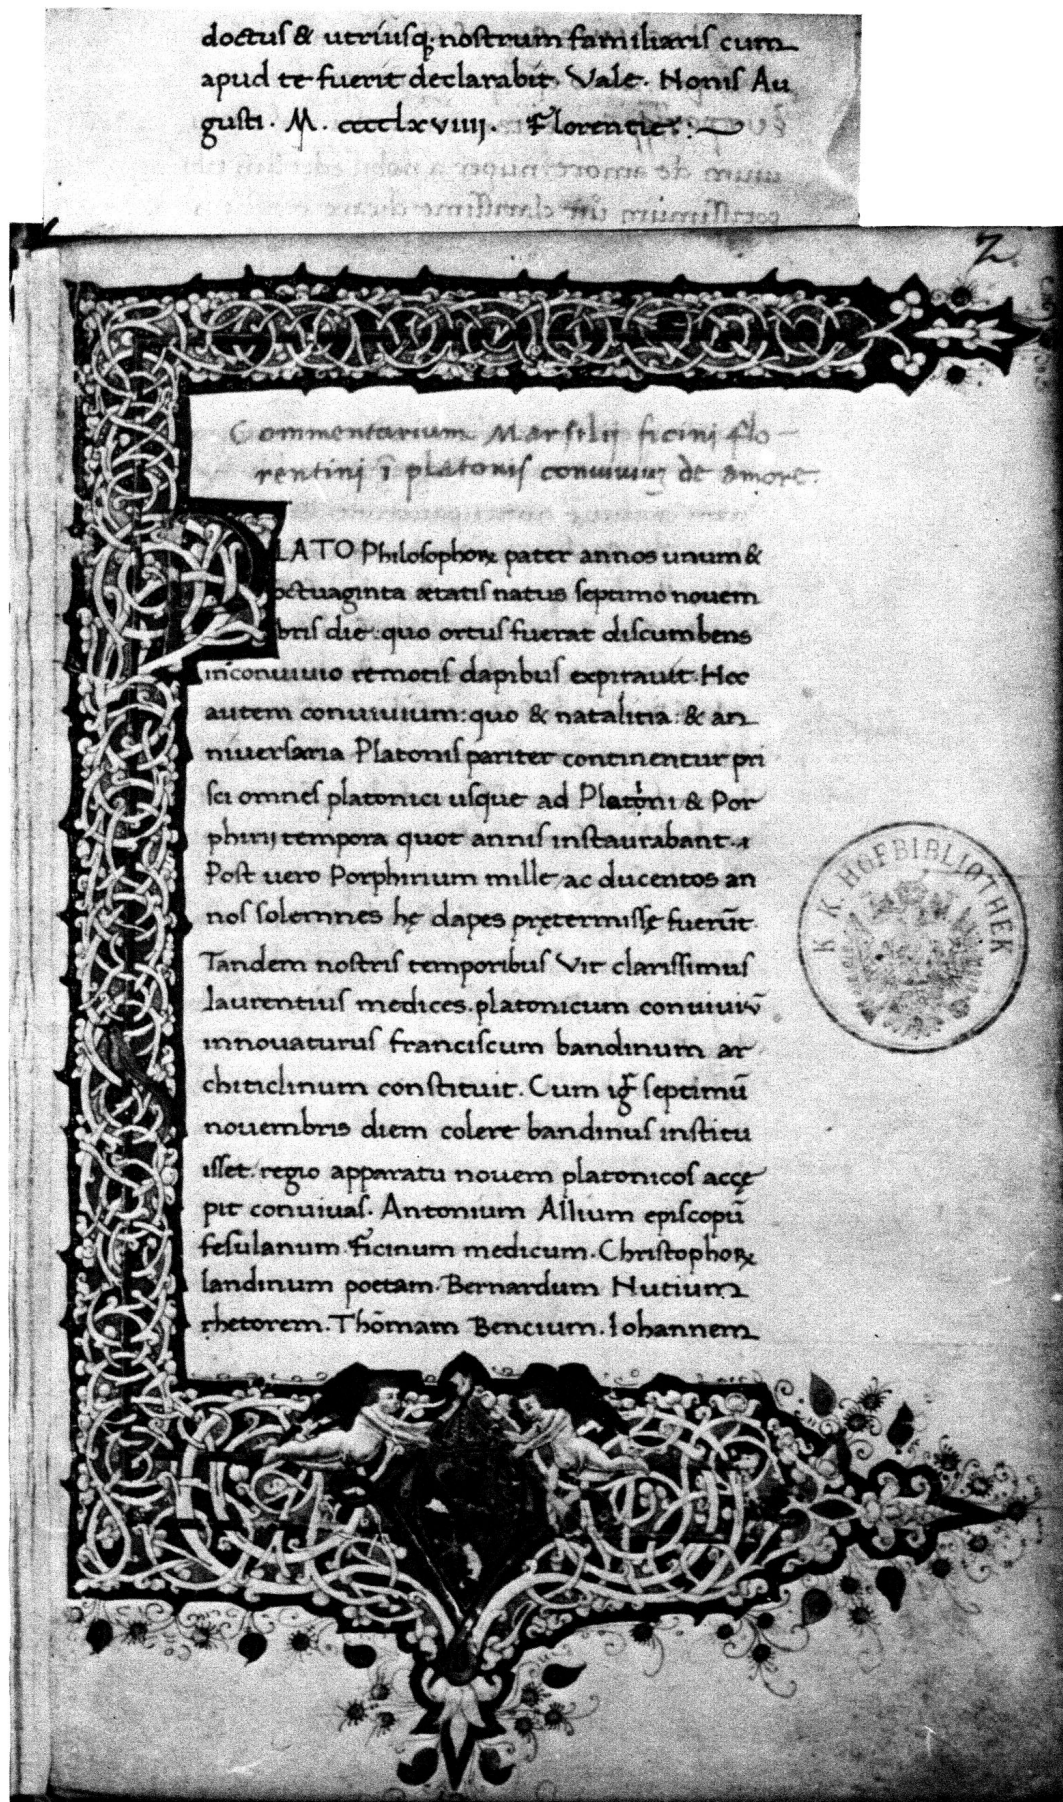 doctus & utriusq; nostrum familiaris cum
apud te fuerit declarabit. Vale. Nonis Au
gusti. M. cccclxviiij. Florentię.
2
Commentarium Marsilij ficini flo
rentini ī platonis conuiuiuȝ de amore.
PLATO Philosophoꝝ pater annos unum &
octuaginta ætatis natus septimo nouem
bris die: quo ortus fuerat discumbens
in conuiuio remotis dapibus expirauit. Hoc
autem conuiuium: quo & natalitia: & an
niuersaria Platonis pariter continentur pri
sci omnes platonici usque ad Platōni & Por
phirij tempora quot annis instaurabant.
Post uero Porphirium mille, ac ducentos an
nos solemnes hę dapes prętermissę fuerūt.
Tandem nostris temporibus Vir clarissimus
laurentius medices. platonicum conuiuiū
innouaturus franciscum bandinum ar
chiticlinum constituit. Cum igr̄ septimū
nouembris diem colere bandinus institu
isset. regio apparatu nouem platonicos accę
pit conuiuas. Antonium Allium episcopū
fesulanum. ficinum medicum. Christophoꝝ
landinum poetam. Bernardum Nutium
rhetorem. Thōmam Bencium. Iohannem
K. K. HOFBIBLIOTHEK